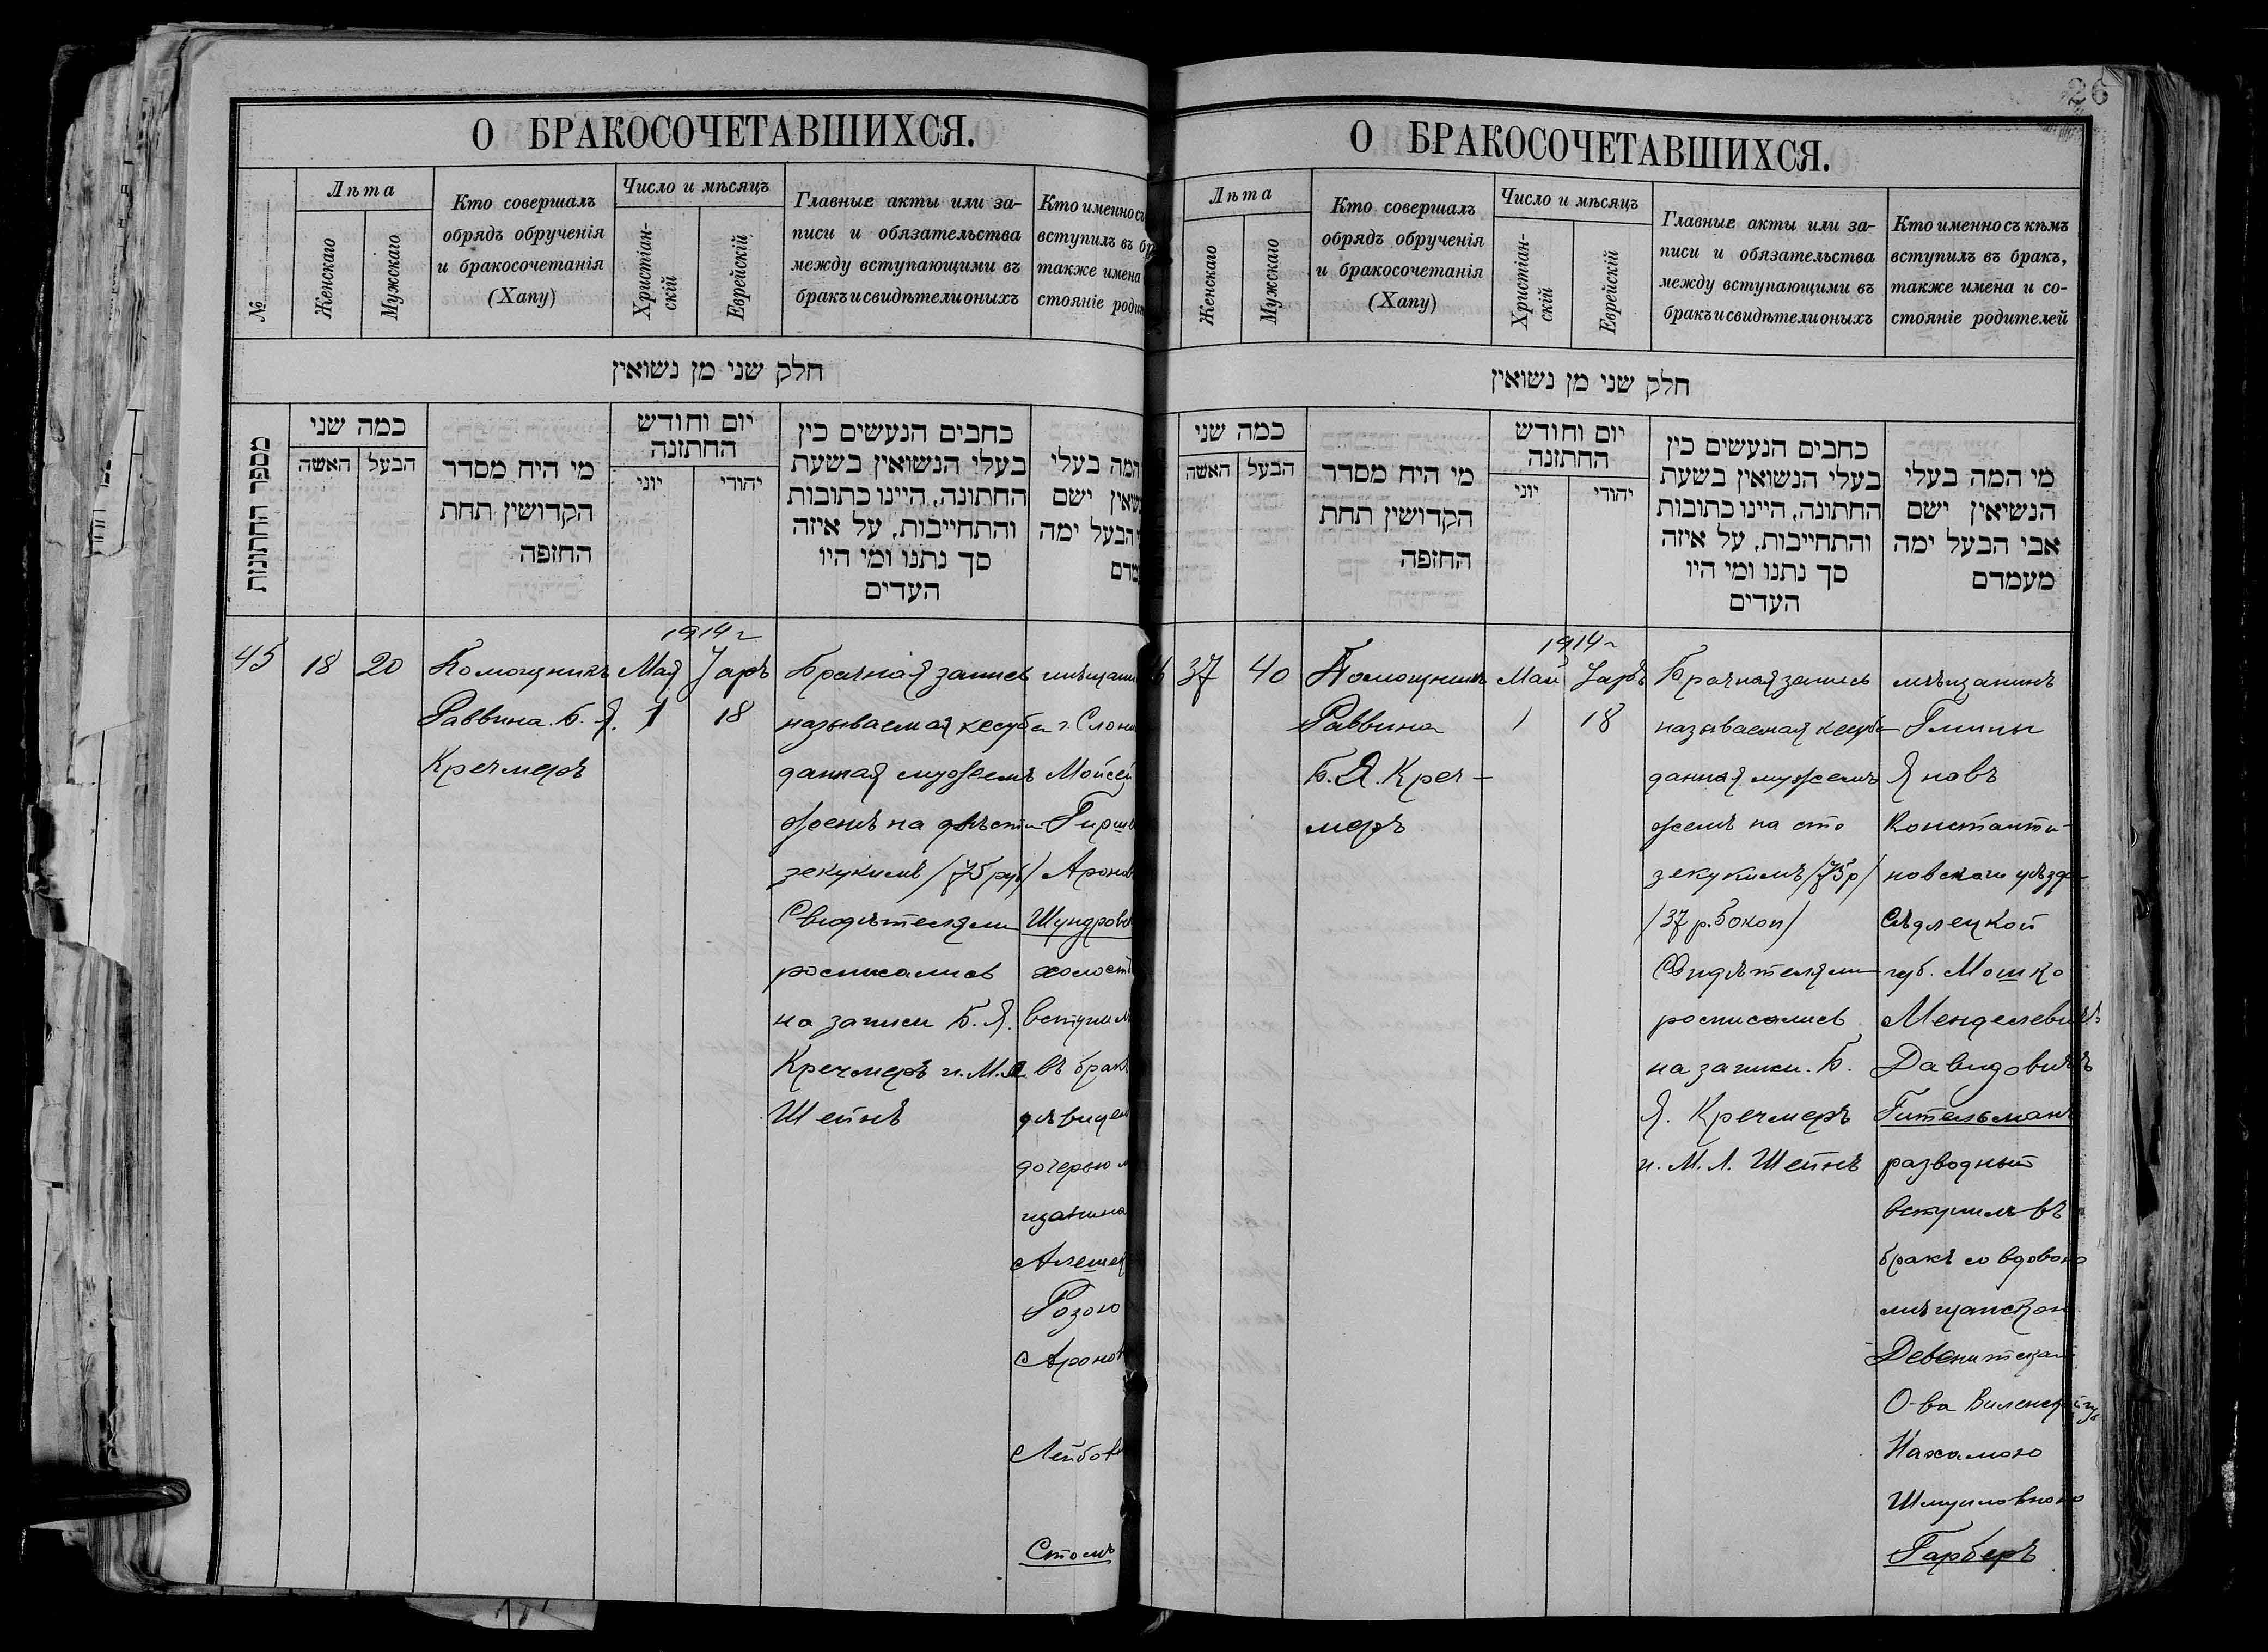 О БРАКОСОЧЕТАВШИХСЯ.
№
Лѣта
Женскаго
Мужскаго
Кто совершалъ
обрядъ обрученія
и бракосочетанія
(Хапу)
Число и мѣсяцъ
Христіан-
скій
Еврейскій
Главные акты или за-
писи и обязательства
между вступающими въ
бракъ и свидѣтели оныхъ
Кто именно съ
вступилъ въ бр
также имена
стояніе родит
חלק שני מן נשואין
מספר החתונות
כמה שני
האשה
הבעל
מי היח מסדר
הקדושין תחת
החזפה
יום וחודש
החתזנה
יוני
יהודי
כחבים הנעשים כין
בעלי הנשואין בשעת
החתונה, היינו כתובות
והתחייבות, על איזה
סך נתנו ומי היו
העדים
המה בעלי
ישם
הבעל ימה
45
18
20
Помощникъ
Раввина Б. Я.
Кречмеръ
1914 г
Мая
1
Іаръ
18
Брачная запись
называемая кесуба
данная мужемъ
женѣ на двѣсти
зекукимъ (75 руб)
Свидѣтелями
росписались
на записи Б. Я.
Кречмеръ и М. Л.
Шейнъ
мѣщани
г. Слони
Мойсей
Гирш
Аронов
Шундрови
холост
вступил
въ бракъ
дѣвицею
дочерью м
щанина
Алешк
Розою
Аронов
Лейбов
Столъ
26
О БРАКОСОЧЕТАВШИХСЯ.
Лѣта
Женскаго
Мужскаго
Кто совершалъ
обрядъ обрученія
и бракосочетанія
(Хапу)
Число и мѣсяцъ
Христіан-
скій
Еврейскій
Главные акты или за-
писи и обязательства
между вступающими въ
бракъ и свидѣтели оныхъ
Кто именно съ кѣмъ
вступилъ въ бракъ,
также имена и со-
стояніе родителей
חלק שני מן נשואין
כמה שני
האשה
הבעל
מי היח מסדר
הקדושין תחת
החזפה
יום וחודש
החתזנה
יוני
יהודי
כחבים הנעשים כין
בעלי הנשואין בשעת
החתונה, היינו כתובות
והתחייבות, על איזה
סך נתנו ומי היו
העדים
מי המה בעלי
הנשיאין ישם
אבי הבעל ימה
מעמדם
37
40
Помощникъ
Раввина
Б. Я. Креч-
меръ
1914 г
Май
1
Іаръ
18
Брачная запись
называемая кесуба
данная мужемъ
женѣ на сто
зекукимъ (75 р)
(37 р. 50 коп)
Свидѣтелями
росписались
на записи. Б.
Я. Кречмеръ
и. М. Л. Шейнъ
мѣщанинъ
Гмины
Яновъ
Константи-
новскаго уѣзда
Сѣдлецкой
губ. Мошко
Менделевичъ
Давидовичъ
Гительманъ
разводный
вступилъ въ
бракъ со вдовою
мѣщанскою
Девенитскаго
О-ва Виленской губ
Нахамою
Шмуиловною
Гарберъ